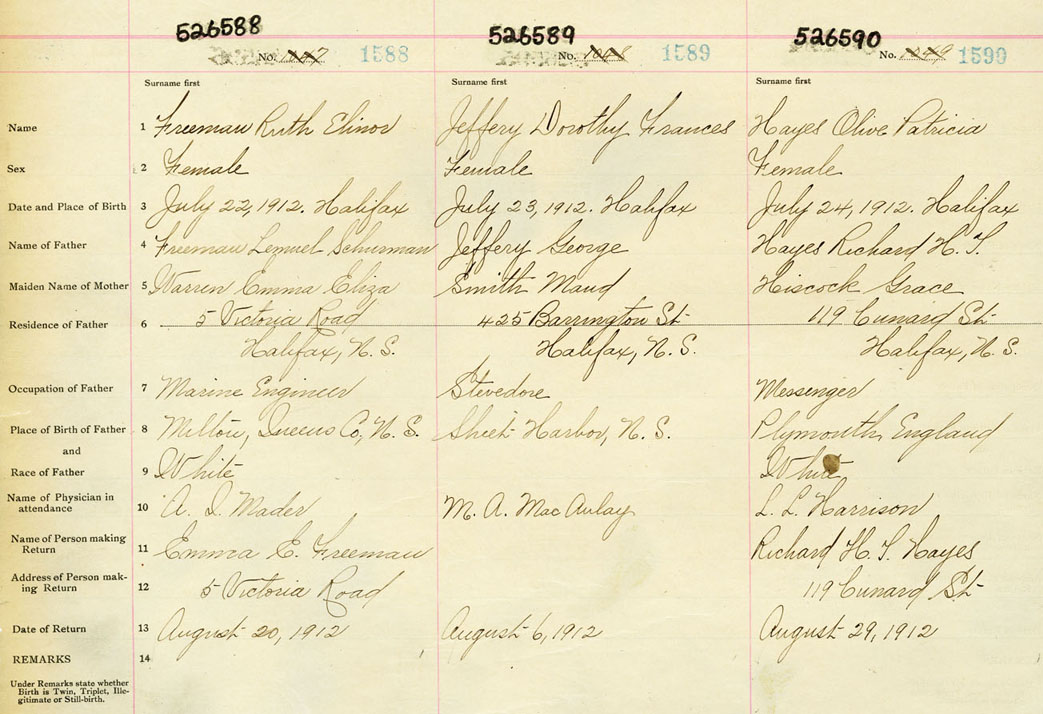 526588 526589 526590
No. 1588 No. 1589 No. 1590
Surname first Surname first Surname first
Name 1 Freeman Ruth Elinor Jeffery Dorothy Frances Hayes Olive Patricia
Sex 2 Female Female Female
Date and Place of Birth 3 July 22, 1912. Halifax July 23, 1912. Halifax July 24, 1912. Halifax
Name of Father 4 Freeman Lemuel Schurman Jeffery George Hayes Richard H. T.
Maiden Name of Mother 5 Warren Emma Eliza Smith Maud Hiscock Grace
Residence of Father 6 5 Victoria Road 425 Barrington St 119 Cunard St
Halifax, N. S. Halifax, N. S. Halifax, N. S.
Occupation of Father 7 Marine Engineer Stevedore Messenger
Place of Birth of Father 8 Milton, Queens Co, N. S. Sheet Harbor, N. S. Plymouth, England
and
Race of Father 9 White White
Name of Physician in
attendance 10 A. I. Mader M. A. MacAulay L. L. Harrison
Name of Person making
Return 11 Emma E. Freeman Richard H. T. Hayes
Address of Person mak-
ing Return 12 5 Victoria Road 119 Cunard St
Date of Return 13 August 20, 1912 August 6, 1912 August 29, 1912
REMARKS 14
Under Remarks state whether
Birth is Twin, Triplet, Ille-
gitimate or Still-birth.